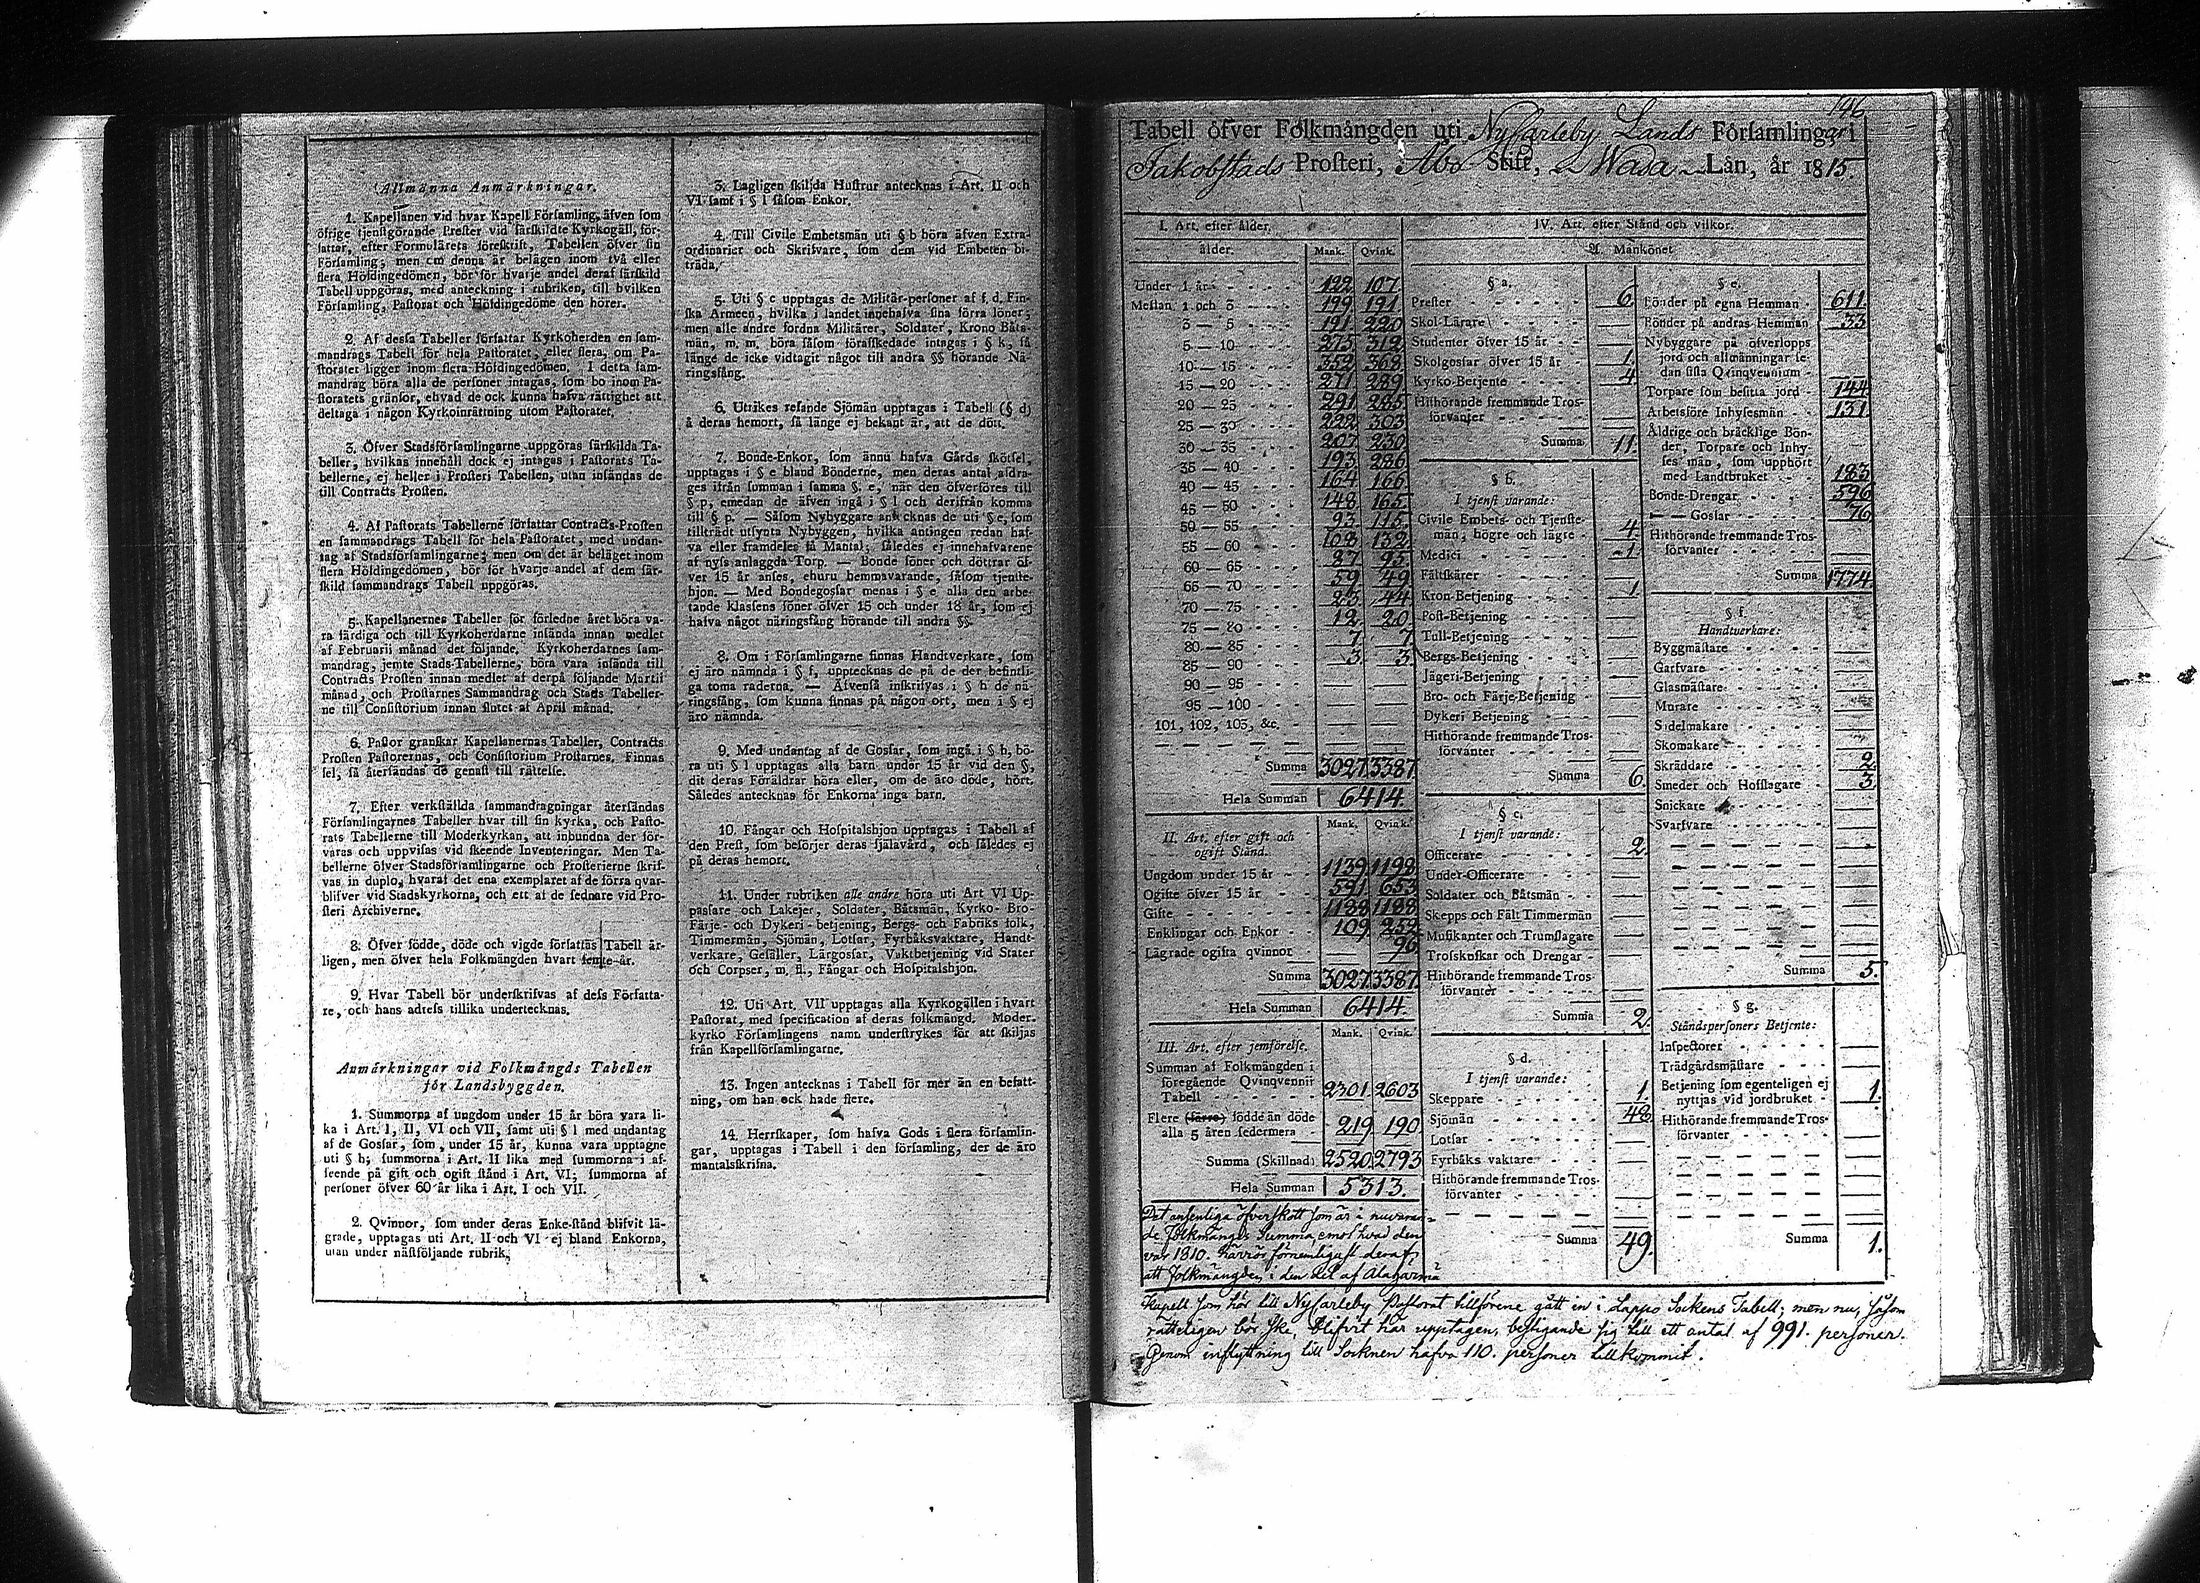 Allmänna Anmärkningar.
1. Kapellanen vid hvar Kapell Förſamling, äfven ſom
öfrige tjenſtgörande Preſter vid ſärſkildte Kyrkogäll, för-
fattar, efter Formulärets föreſkrift, Tabellen öfver ſin
Förſamling; men om denna är belägen inom två eller
flera Höfdingedömen, bör för hvarje andel deraf ſärſkild
Tabell uppgöras, med anteckning i rubriken, till hvilken
Förſamling, Paſtorat och Höfdingedöme den hörer.
2. Af deſſa Tabeller författar Kyrkoherden en ſam-
mandrags Tabell för hela Paſtoratet, eller flera, om Pa-
ſtoratet ligger inom flera Höfdingedömen. I detta ſam-
mandrag böra alla de perſoner intagas, ſom bo inom Pa-
ſtoratets gränſor, ehvad de ock kunna hafva rättighet att
deltaga i någon Kyrkoinrättning utom Paſtoratet.
3. Öfver Stadsförſamlingarne uppgöras ſärſkilda Ta-
beller, hvilkas innehåll dock ej intages i Paſtorats Ta-
bellerne, ej heller i Proſteri Tabellen, utan inſändas de
till Contracts Proſten.
4. Af Paſtorats Tabellerne författar Contracts-Proſten
en ſammandrags Tabell för hela Paſtoratet, med undan-
tag af Stadsförſamlingarne; men om det är beläget inom
flera Höfdingedömen, bör för hvarje andel af dem ſär-
ſkild ſammandrags Tabell uppgöras.
5. Kapellanernes Tabeller för förledne året böra va-
ra färdiga och till Kyrkoherdarne inſända innan medlet
af Februarii månad det följande. Kyrkoherdarnes ſam-
mandrag, jemte Stads-Tabellerne, böra vara inſända till
Contracts Proſten innan medlet af derpå följande Martii
månad, och Proſtarnes Sammandrag och Stads Tabeller-
ne till Conſiſtorium innan ſlutet af April månad.
6. Paſtor granſkar Kapellanernas Tabeller, Contracts
Proſten Paſtorernas, och Conſiſtorium Proſtarnes. Finnas
fel, ſå återſändas de genaſt till rättelſe.
7. Efter verkſtällda ſammandragningar återſändas
Förſamlingarnes Tabeller hvar till ſin kyrka, och Paſto-
rats Tabellerne till Moderkyrkan, att inbundna der för-
varas och uppviſas vid ſkeende Inventeringar. Men Ta-
bellerne öfver Stadsförſamlingarne och Proſterierne ſkrif-
vas in duplo, hvaraf det ena exemplaret af de förra qvar-
blifver vid Stadskyrkorna, och ett af de ſednare vid Pro-
ſteri Archiverne.
8. Öfver födde, döde och vigde författas Tabell år-
ligen, men öfver hela Folkmängden hvart femte år.
9. Hvar Tabell bör underſkrifvas af deſs Författa-
re, och hans adreſs tillika undertecknas.
Anmärkningar vid Folkmängds Tabellen
för Landsbyggden.
1. Summorna af ungdom under 15 år böra vara li-
ka i Art. I, II, VI och VII, ſamt uti § l med undantag
af de Goſſar, ſom, under 15 år, kunna vara upptagne
uti § h; ſummorna i Art. II lika med ſummorna i af-
ſeende på gift och ogift ſtånd i Art. VI; ſummorna af
perſoner öfver 60 år lika i Art. I och VII.
2. Qvinnor, ſom under deras Enke-ſtånd blifvit lä-
grade, upptagas uti Art. II och VI ej bland Enkorna,
utan under näſtföljande rubrik.
3. Lagligen ſkiljda Huſtrur antecknas i Art. II och
VI ſamt i § l ſåſom Enkor.
4. Till Civile Embetsmän uti § b höra äfven Extra-
ordinarier och Skrifvare, ſom dem vid Embeten bi-
träda.
5. Uti § c upptagas de Militär-perſoner af f. d. Fin-
ſka Armeen, hvilka i landet innehafva ſina förra löner;
men alle andre fordna Militärer, Soldater, Krono Båts-
män, m. m. böra ſåſom förafſkedade intagas i § k, ſå
länge de icke vidtagit något till andra §§ hörande Nä-
ringsfång.
6. Utrikes reſande Sjömän upptagas i Tabell (§ d)
å deras hemort, ſå länge ej bekant är, att de dött.
7. Bonde-Enkor, ſom ännu hafva Gårds ſkötſel,
upptagas i § e bland Bönderne, men deras antal afdra-
ges ifrån ſumman i ſamma §. e, när den öfverföres till
§ p, emedan de äfven ingå i § l och derifrån komma
till § p. — Såſom Nybyggare antecknas de uti § e, ſom
tillträdt utſynta Nybyggen, hvilka antingen redan haf-
va eller framdeles få Mantal; ſåledes ej innehafvarene
af nyſs anlaggda Torp. — Bonde ſöner och döttrar öf-
ver 15 år anſes, ehuru hemmavarande, ſåſom tjenſte-
hjon. — Med Bondegoſſar menas i § e alla den arbe-
tande klaſſens ſöner öfver 15 och under 18 år, ſom ej
hafva något näringsfång hörande till andra §§.
8. Om i Förſamlingarne finnas Handtverkare, ſom
ej äro nämnda i § f, upptecknas de på de der befintli-
ga toma raderna. — Äfvenſå inſkrifvas i § h de nä-
ringsfång, ſom kunna finnas på någon ort, men i § ej
äro nämnda.
9. Med undantag af de Goſſar, ſom ingå i § h, bö-
ra uti § l upptagas alla barn under 15 år vid den §,
dit deras Föräldrar höra eller, om de äro döde, hört.
Således antecknas för Enkorna inga barn.
10. Fångar och Hoſpitalshjon upptagas i Tabell af
den Preſt, ſom beſörjer deras ſjälavård, och ſåledes ej
på deras hemort.
11. Under rubriken alle andre höra uti Art VI Up-
paſſare och Lakejer, Soldater, Båtsmän, Kyrko- Bro-
Färje- och Dykeri-betjening, Bergs- och Fabriks folk,
Timmermän, Sjömän, Lotſar, Fyrbåksvaktare, Handt-
verkare, Geſäller, Lärgoſſar, Vaktbetjening vid Stater
och Corpſer, m. fl., Fångar och Hoſpitalshjon.
12. Uti Art. VII upptagas alla Kyrkogällen i hvart
Paſtorat, med ſpecification af deras folkmängd. Moder-
kyrko Förſamlingens namn underſtrykes för att ſkiljas
från Kapellförſamlingarne.
13. Ingen antecknas i Tabell för mer än en befatt-
ning, om han ock hade flere.
14. Herrſkaper, ſom hafva Gods i flera förſamlin-
gar, upptagas i Tabell i den förſamling, der de äro
mantalsſkrifna.
146
Tabell öfver Folkmängden uti Nycarleby Lands Förſamlingar i
Jakobſtads Proſteri, Åbo Stift, Wasa Län, år 1815.
I. Art. efter ålder.
ålder. Mank. Qvink.
Under 1 år 122 107
Mellan 1 och 3 199 191
3 — 5 191 220
5 — 10 275 312
10 — 15 352 368
15 — 20 271 289
20 — 25 291 285
25 — 30 222 303
30 — 35 207 230
35 — 40 193 286
40 — 45 164 166
45 — 50 148 165
50 — 55 93 115
55 — 60 108 132
60 — 65 87 95
65 — 70 59 49
70 — 75 23 44
75 — 80 12 20
80 — 85 7 7
85 — 90 3 3
90 — 95 — —
95 — 100 — —
101, 102, 103, &c. — —
Summa 3027 3387
Hela Summan 6414.
Mank. Qvink.
II. Art. efter gift och
ogift Stånd.
Ungdom under 15 år 1139 1198
Ogifte öfver 15 år 591 653
Gifte 1188 1188
Enklingar och Enkor 109 252
Lägrade ogifta qvinnor 96
Summa 3027 3387
Hela Summan 6414.
Mank. Qvink.
III. Art. efter jemförelſe.
Summan af Folkmängden i
föregående Qvinqvennii
Tabell 2301 2603
Flere (färre) födde än döde
alla 5 åren ſedermera 219 190
Summa (Skillnad) 2520 2793
Hela Summan 5313.
IV. Art. efter Stånd och vilkor.
A. Mankönet
§ a.
Preſter 6
Skol-Lärare —
Studenter öfver 15 år —
Skolgoſſar öfver 15 år 1
Kyrko-Betjente 4
Hithörande fremmande Tros-
förvanter —
Summa 11.
§ b.
I tjenſt varande:
Civile Embets- och Tjenſte-
män, högre och lägre 4
Medici 1
Fältſkärer —
Kron-Betjening 1
Poſt-Betjening —
Tull-Betjening —
Bergs-Betjening —
Jägeri-Betjening —
Bro- och Färje-Betjening —
Dykeri Betjening —
Hithörande fremmande Tros-
förvanter —
Summa 6.
§ c.
I tjenſt varande:
Officerare 2
Under-Officerare —
Soldater och Båtsmän —
Skepps och Fält Timmermän —
Muſikanter och Trumſlagare —
Troſskuſkar och Drengar —
Hithörande fremmande Tros-
förvanter —
Summa 2.
§ d.
I tjenſt varande:
Skeppare 1
Sjömän 48
Lotſar —
Fyrbåks vaktare —
Hithörande fremmande Tros-
förvanter —
Summa 49.
§ e.
Bönder på egna Hemman 611
Bönder på andras Hemman 33
Nybyggare på öfverlopps
jord och allmänningar ſe-
dan ſiſta Qvinqvennium —
Torpare ſom beſitta jord 144
Arbetsföre Inhyſesmän 131
Åldrige och bräcklige Bön-
der, Torpare och Inhy-
ſes män, ſom upphört
med Landtbruket 183
Bonde-Drengar 596
— — Goſſar 76
Hithörande fremmande Tros-
förvanter —
Summa 1774.
§ f.
Handtverkare:
Byggmäſtare —
Garfvare —
Glasmäſtare —
Murare —
Sadelmakare —
Skomakare —
Skräddare 2
Smeder och Hofſlagare 3
Snickare —
Svarfvare —
Summa 5.
§ g.
Ståndsperſoners Betjente:
Inſpector —
Trädgårdsmäſtare —
Betjening ſom egenteligen ej
nyttjas vid jordbruket 1
Hithörande fremmande Tros-
förvanter —
Summa 1.
Det anſenliga öfverſkott ſom är i nuvaran-
de Folkmängds Summa, emot hvad den
var 1810. härrör förnemligaſt deraf,
att Folkmängden i den del af Alahärmä
Kapell ſom hör till Nycarleby Paſtorat tillförene gått in i Lappo Sockens Tabell; men nu, ſåſom
rätteligen bör ſke, blifvit här upptagen, beſtigande ſig till ett antal af 991. perſoner.
Genom inflyttning till Socknen hafva 110. perſoner tillkommit.